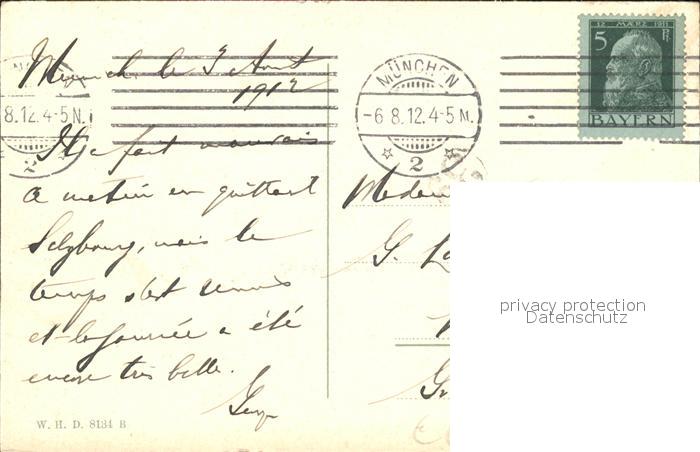 Munich, le 5 Août
1912
Il a fait mauvais
ce matin en quittant
Salzbourg, mais le
temps s'est remis
et la journée a été
encore très belle.
W. H. D. 8134 B
8.12. 4-5 N.
MÜNCHEN
-6 8.12. 4-5 N.
2
12. MÄRZ 1911
5 Pf.
BAYERN
Madame
G.
privacy protection
Datenschutz